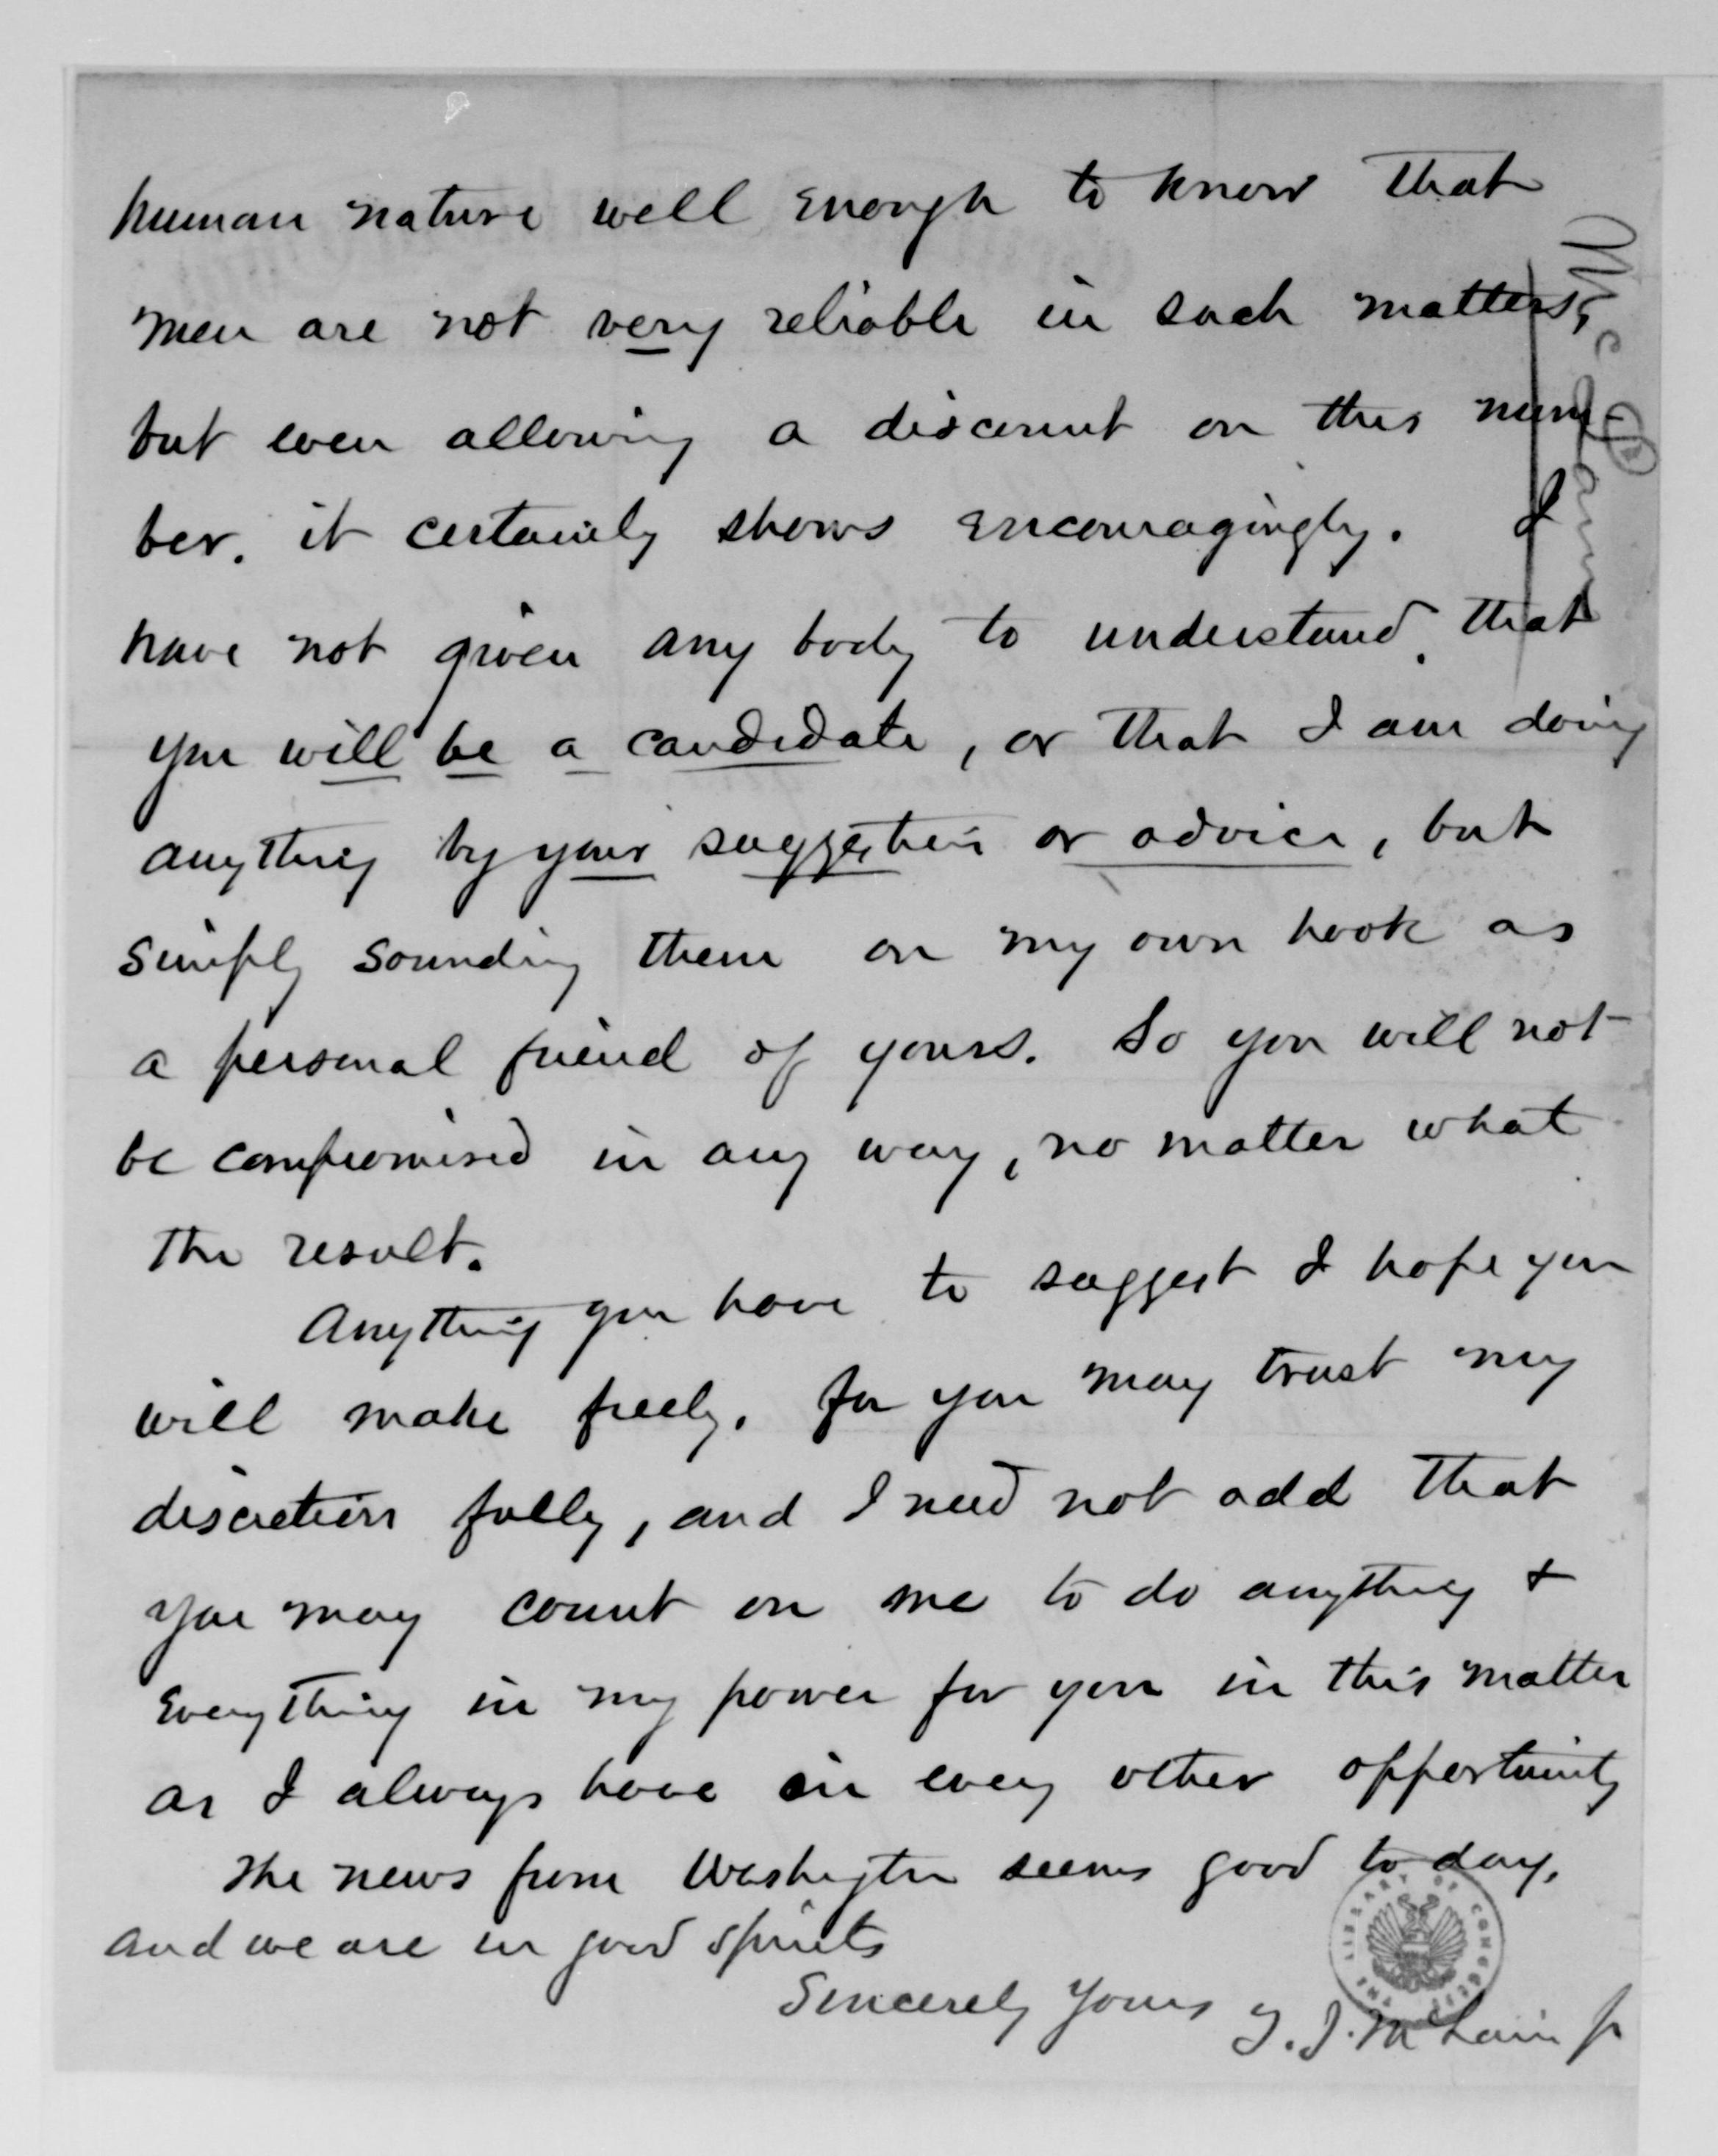 human nature well enough to know that
men are not very reliable in such matters,
but even allowing a discount on this num-
ber. it certainly shows encouragingly. I
have not given any body to understand, that
you will be a candidate, or that I am doing
anything by your suggestion or advice, but
simply sounding them on my own hook as
a personal friend of yours. So you will not
be compromised in any way, no matter what
the result.
Anything you have to suggest I hope you
will make freely. for you may trust my
discretion fully, and I need not add that
you may count on me to do anything &
everything in my power for you in this matter
as I always have in every other opportunity
The news from Washington seems good to day,
and we are in good spirits
Sincerely Yours T. J. McLain Jr
McLain
THE LIBRARY OF CONGRESS